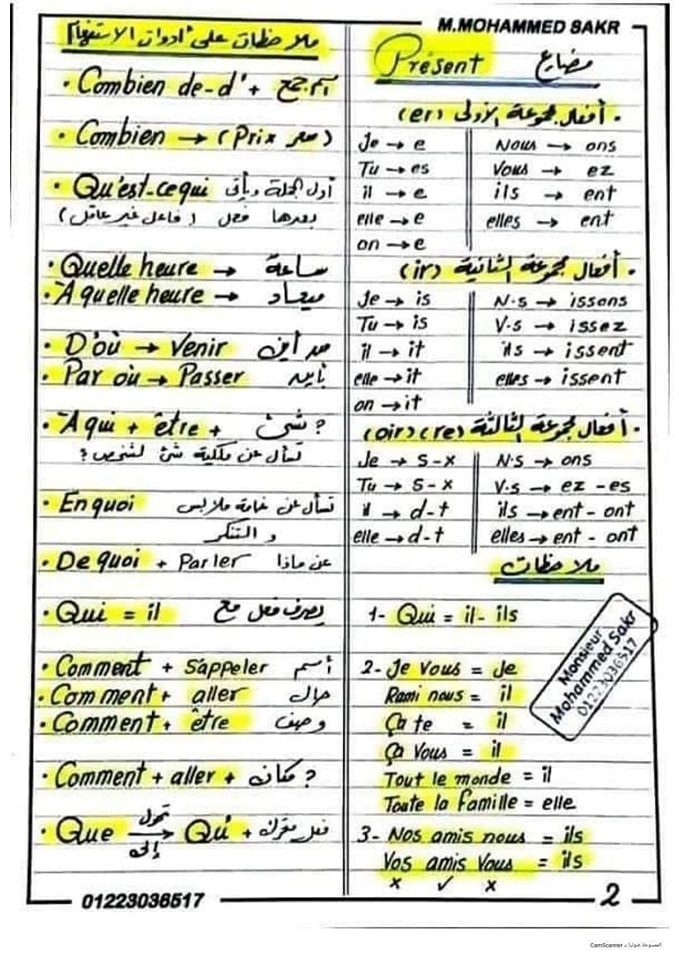 M.MOHAMMED SAKR
ملاحظات على أدوات الاستفهام
• Combien de-d' + اسم جمع
• Combien → (Prix سعر)
• Qu'est-ce qui أول الجملة ويأتى
بعدها فعل (فاعل غير عاقل)
• Quelle heure → ساعة
• À quelle heure → ميعاد
• D'où → Venir من أين
• Par où → Passer بأين
• À qui + être + شئ ?
تسأل عن ملكية شئ لشخص ?
• En quoi تسأل عن خامة ملابس
و التنكر
• De quoi + Parler عن ماذا
• Qui = il يصرف فعل مع
• Comment + s'appeler اسم
• Comment + aller حال
• Comment + être وصف
• Comment + aller + مكان ?
• Que تحول إلى → Qui + فعل
01223036517
Présent مضارع
أفعال مجموعة الأولى (er) •
Je → e
Tu → es
il → e
elle → e
on → e
Nous → ons
Vous → ez
ils → ent
elles → ent
أفعال مجموعة الثانية (ir) •
Je → is
Tu → is
il → it
elle → it
on → it
N.s → issons
V.s → issez
ils → issent
elles → issent
أفعال مجموعة الثالثة (re) (oir) •
Je → s-x
Tu → s-x
il → d-t
elle → d-t
N.s → ons
V.s → ez - es
ils → ent - ont
elles → ent - ont
ملاحظات
1- Qui = il - ils
2- Je vous = Je
Rami nous = il
Ça te = il
Ça vous = il
Tout le monde = il
Toute la famille = elle
3- Nos amis nous = ils
Vos amis vous = ils
x ✓ x
Monsieur
Mohammed Sakr
01223036517
2
الممسوحة ضوئيا بـ CamScanner